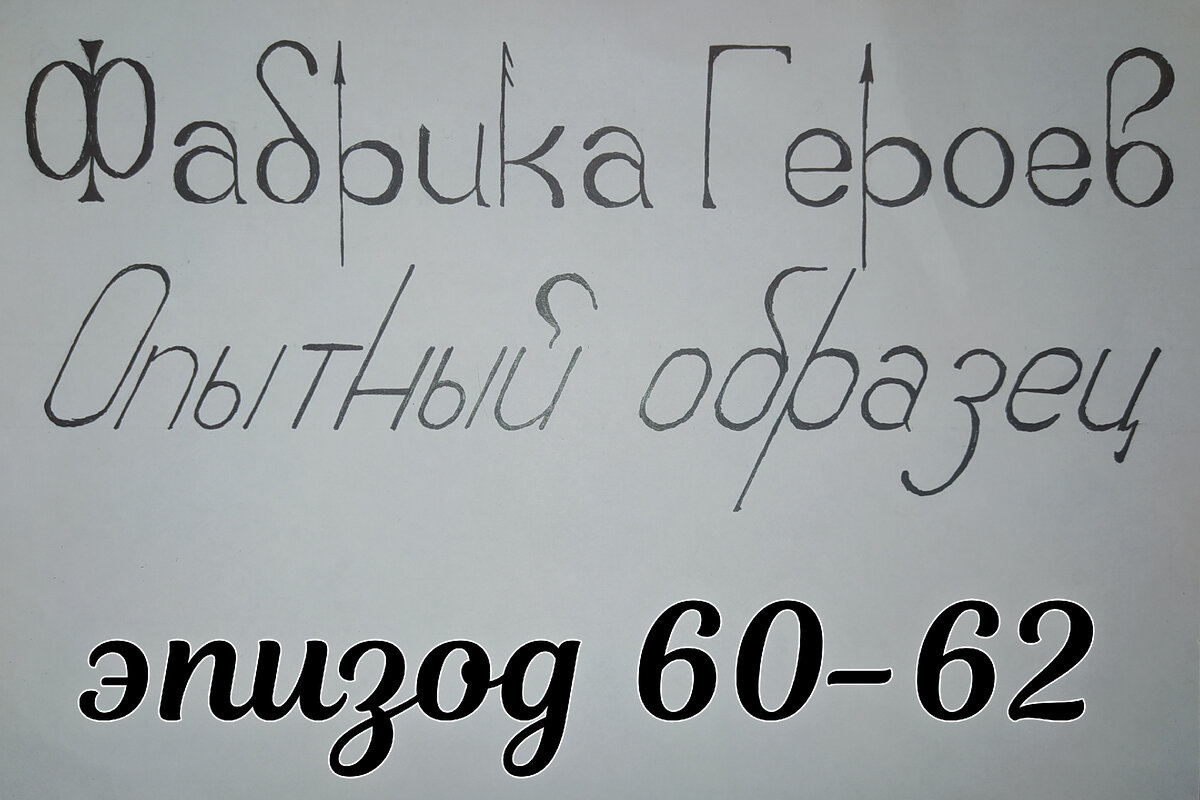 Фабрика Героев
Опытный образец
эпизод 60-62